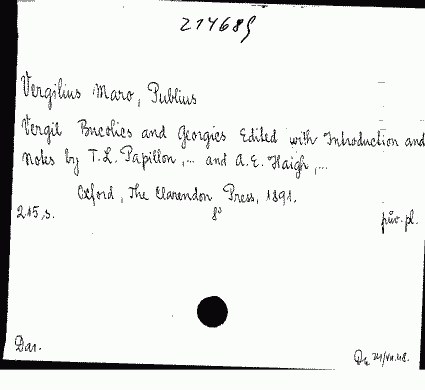 214689
Vergilius Maro, Publius
Vergil Bucolics and Georgics Edited with Introduction and
Notes by T. L. Papillon,... and A. E. Haigh,...
Oxford, The Clarendon Press, 1891.
215, s. 8° pův. pl.
Dar.